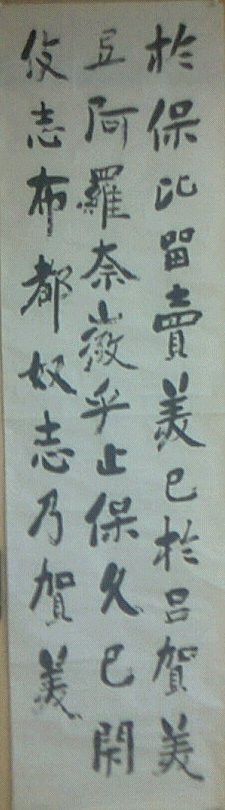 於保比留賣美己於呂賀美
阿羅奈微乎止保久己閑
伎志布都奴志乃賀美